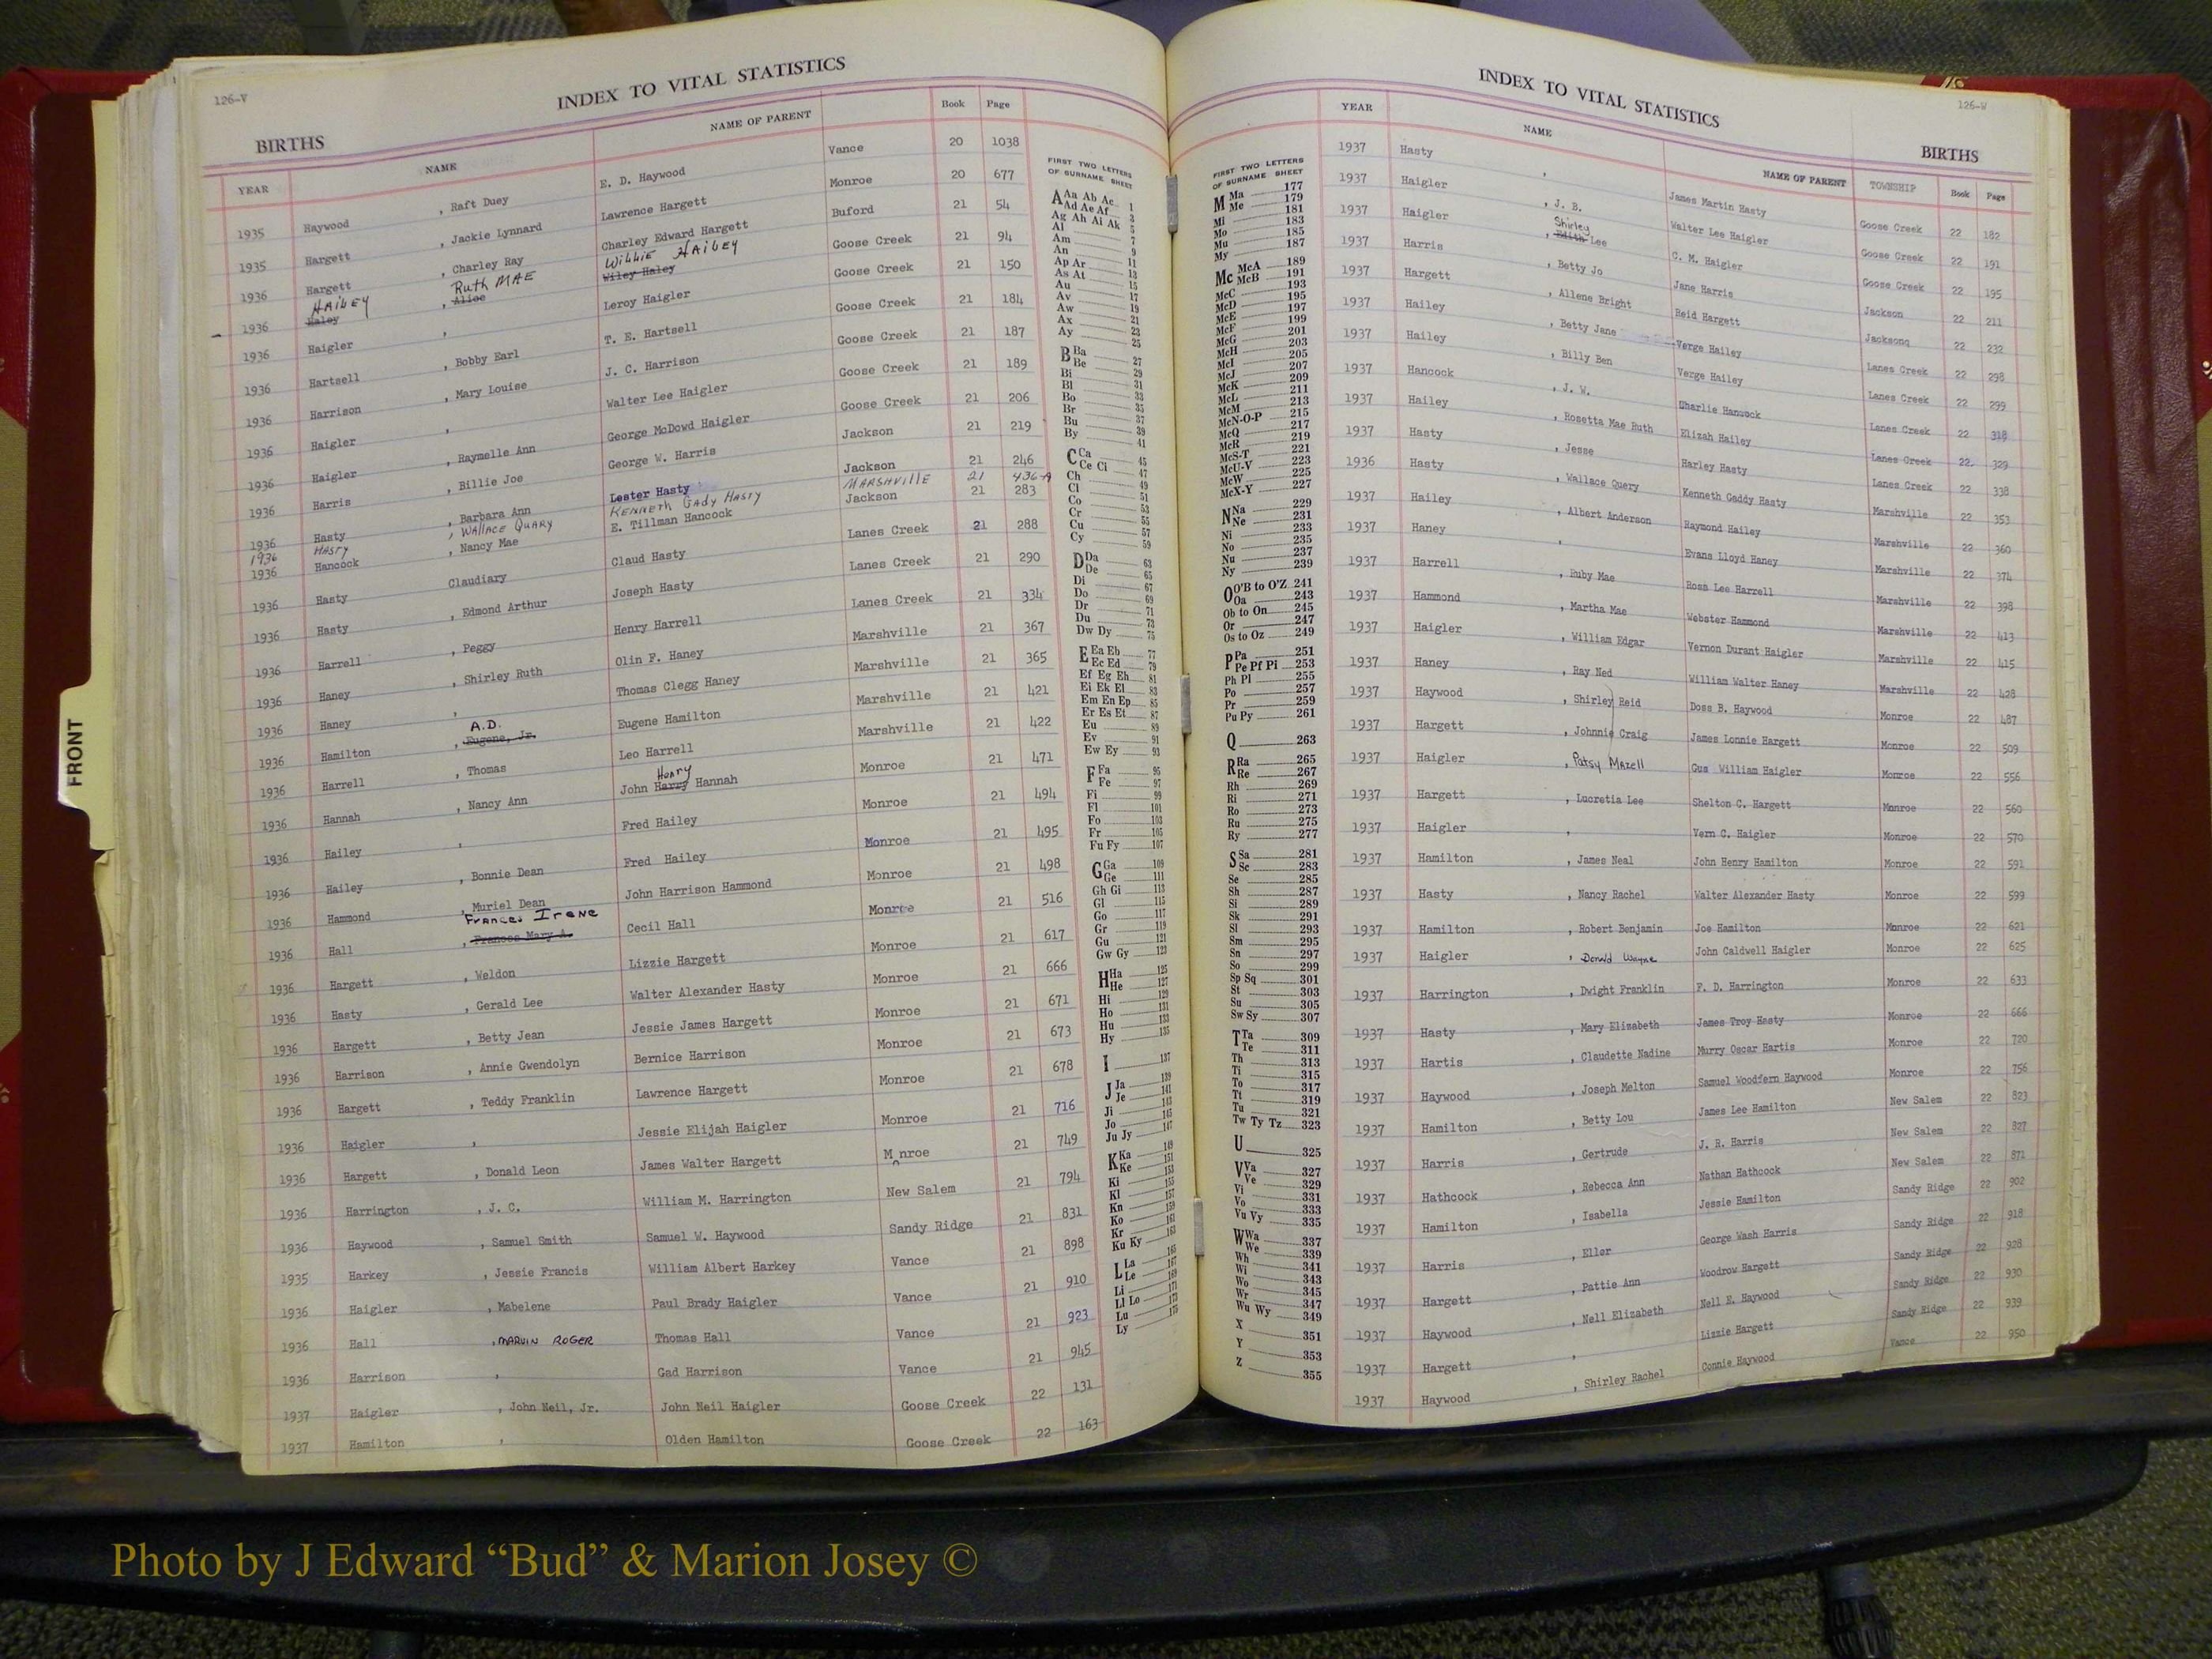 126-V
INDEX TO VITAL STATISTICS
BIRTHS
YEAR NAME NAME OF PARENT Book Page
1935 Haywood , Raft Duey E. D. Haywood Vance 20 1038
1935 Hargett , Jackie Lynnard Lawrence Hargett Monroe 20 677
1936 Hargett , Charley Ray Charley Edward Hargett Buford 21 54
HAiLEY Ruth MAE Willie HAiLEY
1936 Haley , Alice Wiley Haley Goose Creek 21 94
1936 Haigler , Leroy Haigler Goose Creek 21 150
1936 Hartsell , Bobby Earl T. E. Hartsell Goose Creek 21 184
1936 Harrison , Mary Louise J. C. Harrison Goose Creek 21 187
1936 Haigler , Walter Lee Haigler Goose Creek 21 189
1936 Haigler , Raymelle Ann George McDowd Haigler Goose Creek 21 206
1936 Harris , Billie Joe George W. Harris Jackson 21 219
1936 Hasty , Barbara Ann Lester Hasty Jackson 21 246
1936 HASTY , WALLACE QUARY KENNETH GADY HASTY MARSHVILLE 21 436-A
1936 Hancock , Nancy Mae E. Tillman Hancock Jackson 21 283
1936 Hasty Claudiary Claud Hasty Lanes Creek 21 288
1936 Hasty , Edmond Arthur Joseph Hasty Lanes Creek 21 290
1936 Harrell , Peggy Henry Harrell Lanes Creek 21 334
1936 Haney , Shirley Ruth Olin F. Haney Marshville 21 367
1936 Haney , Thomas Clegg Haney Marshville 21 365
A.D.
1936 Hamilton , Eugene, Jr. Eugene Hamilton Marshville 21 421
1936 Harrell , Thomas Leo Harrell Marshville 21 422
Henry
1936 Hannah , Nancy Ann John Harry Hannah Monroe 21 471
1936 Hailey , Fred Hailey Monroe 21 494
1936 Hailey , Bonnie Dean Fred Hailey Monroe 21 495
1936 Hammond , Muriel Dean John Harrison Hammond Monroe 21 498
Frances Irene
1936 Hall , Frances Mary A. Cecil Hall Monroe 21 516
1936 Hargett , Weldon Lizzie Hargett Monroe 21 617
1936 Hasty , Gerald Lee Walter Alexander Hasty Monroe 21 666
1936 Hargett , Betty Jean Jessie James Hargett Monroe 21 671
1936 Harrison , Annie Gwendolyn Bernice Harrison Monroe 21 673
1936 Hargett , Teddy Franklin Lawrence Hargett Monroe 21 678
1936 Haigler , Jessie Elijah Haigler Monroe 21 716
1936 Hargett , Donald Leon James Walter Hargett M nroe 21 749
1936 Harrington , J. C. William M. Harrington New Salem 21 794
1936 Haywood , Samuel Smith Samuel W. Haywood Sandy Ridge 21 831
1935 Harkey , Jessie Francis William Albert Harkey Vance 21 898
1936 Haigler , Mabelene Paul Brady Haigler Vance 21 910
1936 Hall , MARVIN ROGER Thomas Hall Vance 21 923
1936 Harrison , Gad Harrison Vance 21 945
1937 Haigler , John Neil, Jr. John Neil Haigler Goose Creek 22 131
1937 Hamilton , Olden Hamilton Goose Creek 22 163
FIRST TWO LETTERS
OF SURNAME SHEET
A Aa Ab Ac 1
Ad Ae Af 3
Ag Ah Ai Ak 5
Al 7
Am 9
An 11
Ap Ar 13
As At 15
Au 17
Av 19
Aw 21
Ax 23
Ay 25
B Ba 27
Be 29
Bi 31
Bl 33
Bo 35
Br 37
Bu 39
By 41
C Ca 45
Ce Ci 47
Ch 49
Cl 51
Co 53
Cr 55
Cu 57
Cy 59
D Da 63
De 65
Di 67
Do 69
Dr 71
Du 73
Dw Dy 75
E Ea Eb 77
Ec Ed 79
Ef Eg Eh 81
Ei Ek El 83
Em En Ep 85
Er Es Et 87
Eu 89
Ev 91
Ew Ey 93
F Fa 95
Fe 97
Fi 99
Fl 101
Fo 103
Fr 105
Fu Fy 107
G Ga 109
Ge 111
Gh Gi 113
Gl 115
Go 117
Gr 119
Gu 121
Gw Gy 123
H Ha 125
He 127
Hi 129
Ho 131
Hu 133
Hy 135
I 137
J Ja 139
Je 141
Ji 143
Jo 145
Ju Jy 147
K Ka 149
Ke 151
Ki 153
Kl 155
Kn 157
Ko 159
Kr 161
Ku Ky 163
L La 165
Le 167
Li 169
Ll Lo 171
Lu 173
Ly 175
FIRST TWO LETTERS
OF SURNAME SHEET
M Ma 177
Me 179
Mi 181
Mo 183
Mu 185
My 187
Mc McA 189
McB 191
McC 193
McD 195
McE 197
McF 199
McG 201
McH 203
McI 205
McJ 207
McK 209
McL 211
McM 213
McN-O-P 215
McQ 217
McR 219
McS-T 221
McU-V 223
McW 225
McX-Y 227
N Na 229
Ne 231
Ni 233
No 235
Nu 237
Ny 239
O O'B to O'Z 241
Oa 243
Ob to On 245
Or 247
Os to Oz 249
P Pa 251
Pe Pf Pi 253
Ph Pl 255
Po 257
Pr 259
Pu Py 261
Q 263
R Ra 265
Re 267
Rh 269
Ri 271
Ro 273
Ru 275
Ry 277
S Sa 281
Sc 283
Se 285
Sh 287
Si 289
Sk 291
Sl 293
Sm 295
Sn 297
So 299
Sp Sq 301
St 303
Su 305
Sw Sy 307
T Ta 309
Te 311
Th 313
Ti 315
To 317
Tt 319
Tu 321
Tw Ty Tz 323
U 325
V Va 327
Ve 329
Vi 331
Vo 333
Vu Vy 335
W Wa 337
We 339
Wh 341
Wi 343
Wo 345
Wr 347
Wu Wy 349
X 351
Y 353
Z 355
126-W
INDEX TO VITAL STATISTICS
BIRTHS
YEAR NAME NAME OF PARENT TOWNSHIP Book Page
1937 Hasty , James Martin Hasty Goose Creek 22 182
1937 Haigler , J. B. Walter Lee Haigler Goose Creek 22 191
Shirley
1937 Haigler , Edith Lee C. M. Haigler Goose Creek 22 195
1937 Harris , Betty Jo Jane Harris Jackson 22 211
1937 Hargett , Allene Bright Reid Hargett Jacksonq 22 232
1937 Hailey , Betty Jane Verge Hailey Lanes Creek 22 298
1937 Hailey , Billy Ben Verge Hailey Lanes Creek 22 299
1937 Hancock , J. W. Charlie Hancock Lanes Creek 22 318
1937 Hailey , Rosetta Mae Ruth Elizah Hailey Lanes Creek 22 329
1937 Hasty , Jesse Harley Hasty Lanes Creek 22 338
1936 Hasty , Wallace Query Kenneth Gaddy Hasty Marshville 22 353
1937 Hailey , Albert Anderson Raymond Hailey Marshville 22 360
1937 Haney , Evans Lloyd Haney Marshville 22 374
1937 Harrell , Ruby Mae Rosa Lee Harrell Marshville 22 398
1937 Hammond , Martha Mae Webster Hammond Marshville 22 413
1937 Haigler , William Edgar Vernon Durant Haigler Marshville 22 415
1937 Haney , Ray Ned William Walter Haney Marshville 22 428
1937 Haywood , Shirley Reid Doss B. Haywood Monroe 22 487
1937 Hargett , Johnnie Craig James Lonnie Hargett Monroe 22 509
1937 Haigler , Patsy Mazell Gus William Haigler Monroe 22 556
1937 Hargett , Lucretia Lee Shelton C. Hargett Monroe 22 560
1937 Haigler , Vern C. Haigler Monroe 22 570
1937 Hamilton , James Neal John Henry Hamilton Monroe 22 591
1937 Hasty , Nancy Rachel Walter Alexander Hasty Monroe 22 599
1937 Hamilton , Robert Benjamin Joe Hamilton Monroe 22 621
1937 Haigler , Donald Wayne John Caldwell Haigler Monroe 22 625
1937 Harrington , Dwight Franklin F. D. Harrington Monroe 22 633
1937 Hasty , Mary Elizabeth James Troy Hasty Monroe 22 666
1937 Hartis , Claudette Nadine Murry Oscar Hartis Monroe 22 720
1937 Haywood , Joseph Melton Samuel Woodfern Haywood Monroe 22 756
1937 Hamilton , Betty Lou James Lee Hamilton New Salem 22 823
1937 Harris , Gertrude J. R. Harris New Salem 22 827
1937 Hathcock , Rebecca Ann Nathan Hathcock New Salem 22 871
1937 Hamilton , Isabella Jessie Hamilton Sandy Ridge 22 902
1937 Harris , Eller George Wash Harris Sandy Ridge 22 918
1937 Hargett , Pattie Ann Woodrow Hargett Sandy Ridge 22 928
1937 Haywood , Nell Elizabeth Nell E. Haywood Sandy Ridge 22 930
1937 Hargett , Lizzie Hargett Sandy Ridge 22 939
1937 Haywood , Shirley Rachel Connie Haywood Vance 22 950
FRONT
Photo by J Edward “Bud” & Marion Josey ©